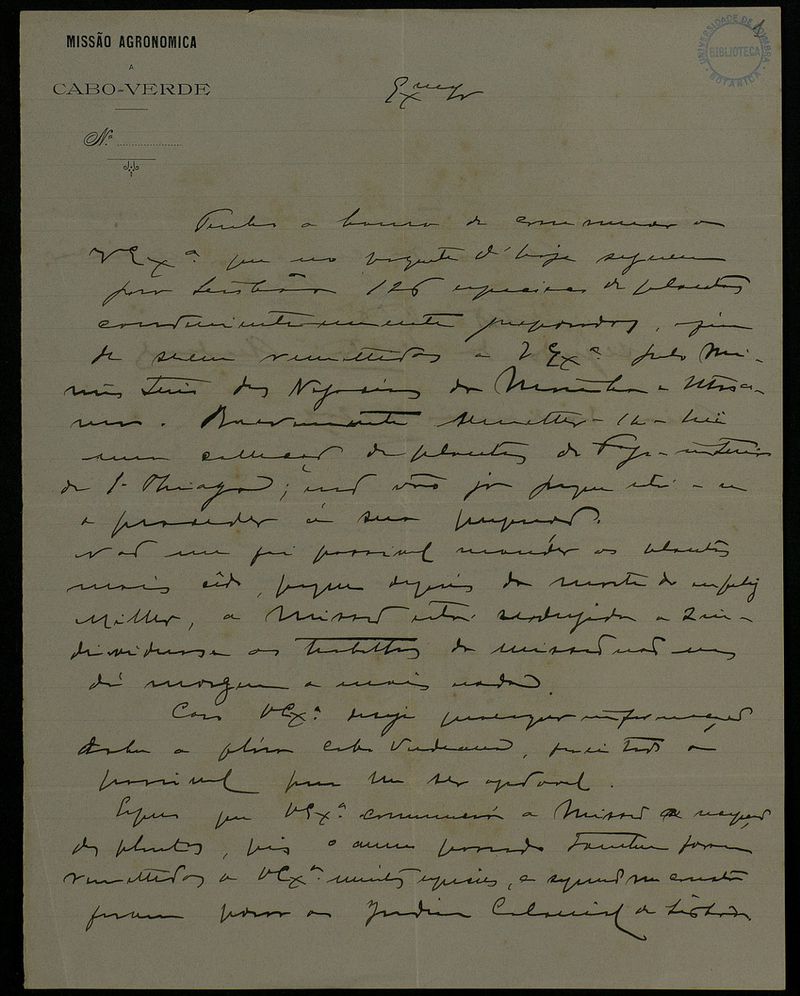 MISSÃO AGRONOMICA
A
CABO-VERDE
Nº
UNIVERSIDADE DE COIMBRA
BIBLIOTECA
BOTANICA
1
Exmo Sr
Tenho a honra de communicar a
V Exª. que no paquete d'hoje seguem
para Lisboa 126 especies de plantas
convenientemente preparadas, afim
de serem remettidas a V Exª. pelo Mi-
nisterio dos Negocios da Marinha e Ultra-
mar. Brevemente remetter-se-ha
uma collecção de plantas do Fogo e interior
de S. Thiago; não vão já porque está-se
a proceder á sua preparação.
Não me foi possivel mandar as plantas
mais cêdo, porque depois da morte do infeliz
Miller, a Missão está reduzida a 2 in-
dividuos e os trabalhos da missão não nos
dá margem a mais nada.
Caso V Exª. deseje quaesquer informações
sobre a flóra Cabo Verdeana, farei todo o
possivel para lhe ser agradavel.
Espero que V Exª. communicará a Missão a recepção
das plantas, pois o anno passado tambem foram
remettidas a V Exª. muitas especies, e segundo me consta
foram para o Jardim Colonial de Lisboa.